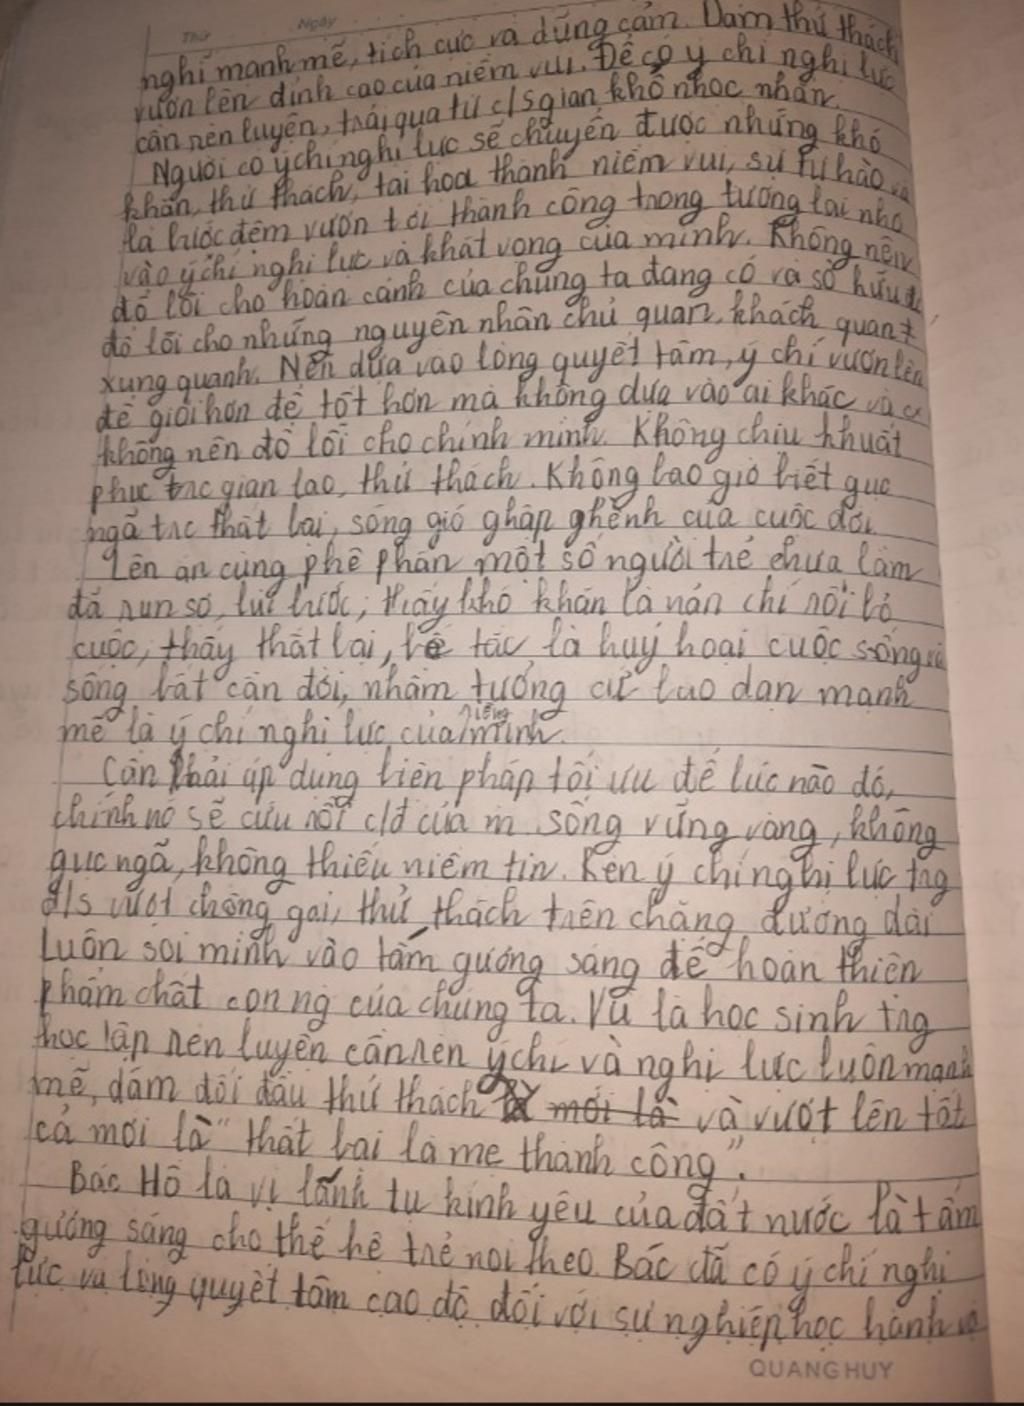 Thứ Ngày
nghĩ mạnh mẽ, tích cực và dũng cảm. Dám thử thách
vươn lên đỉnh cao của niềm vui. Để có ý chí nghị lực
cần rèn luyện, trải qua từ c/s gian khổ nhọc nhằn.
Người có ý chí nghị lực sẽ chuyển được những khó
khăn, thử thách, tai hoạ thành niềm vui, sự tự hào và
là bước đệm vươn tới thành công trong tương lai nhờ
vào ý chí nghị lực và khát vọng của mình. Không nên
đổ lỗi cho hoàn cảnh của chúng ta đang có và sở hữu
đổ lỗi cho những nguyên nhân chủ quan, khách quan
xung quanh. Nên dựa vào lòng quyết tâm, ý chí vươn lên
để giỏi hơn để tốt hơn mà không dựa vào ai khác và
không nên đổ lỗi cho chính mình. Không chịu khuất
phục trc gian lao, thử thách. Không bao giờ biết gục
ngã trc thất bại, sóng gió ghập ghềnh của cuộc đời.
Lên án cùng phê phán một số người trẻ chưa làm
đã run sợ, lùi bước, thấy khó khăn là nản chí rồi bỏ
cuộc, thấy thất bại, bế tắc là huỷ hoại cuộc sống và
sống bất cần đời, nhầm tưởng cứ bạo dạn mạnh
mẽ là ý chí nghị lực của riêng mình.
Cần phải áp dụng biện pháp tối ưu để lúc nào đó,
chính nó sẽ cứu rỗi c/đ của m. sống vững vàng, không
gục ngã, không thiếu niềm tin. Rèn ý chí nghị lực trg
đ/s vượt chông gai, thử thách trên chặng đường dài
Luôn soi mình vào tấm gương sáng để hoàn thiện
phẩm chất con ng của chúng ta. Vì là học sinh trg
học tập rèn luyện cần rèn ý chí và nghị lực luôn mạnh
mẽ, dám đối đầu thử thách mới là và vượt lên tất
cả mới là "thất bại là mẹ thành công".
Bác Hồ là vị lãnh tụ kính yêu của đất nước là tấm
gương sáng cho thế hệ trẻ noi theo. Bác đã có ý chí nghị
lực và lòng quyết tâm cao độ đối với sự nghiệp học hành và
QUANG HUY